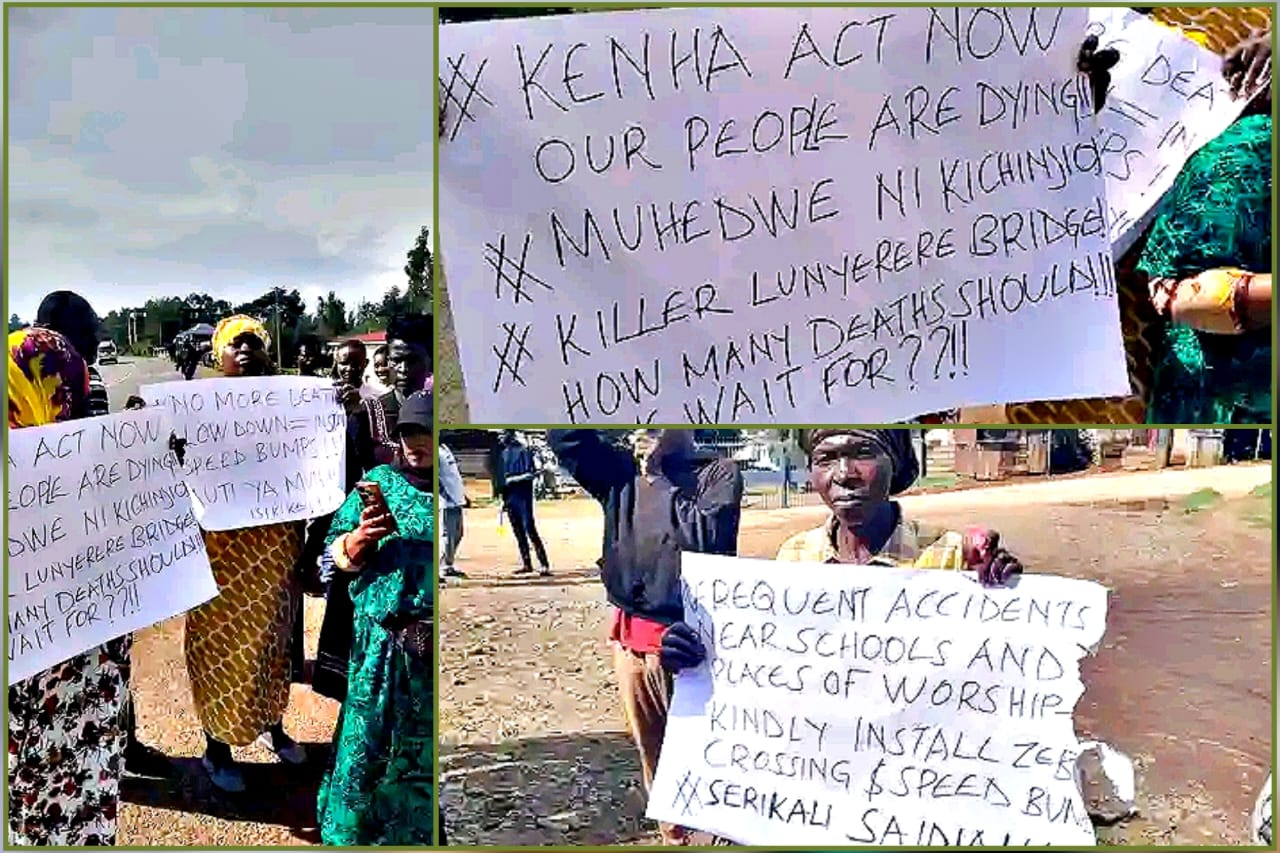 ACT NOW
EOPLE ARE DYING!!
DWE NI KICHINJIO
LUNYERERE BRIDGE!
MANY DEATHS SHOULD!!!
WAIT FOR??!!
NO MORE DEATH
LOW DOWN = INST
SPEED BUMPS!!!
UTI YA
# KENHA ACT NOW
OUR PEOPLE ARE DYING!!
# MUHEDWE NI KICHINJIO
# KILLER LUNYERERE BRIDGE!
HOW MANY DEATHS SHOULD!!!
WAIT FOR??!!
DEA
FREQUENT ACCIDENTS
NEAR SCHOOLS AND
PLACES OF WORSHIP-
KINDLY INSTALL ZEB
CROSSING & SPEED BUM
# SERIKALI SAIDIA